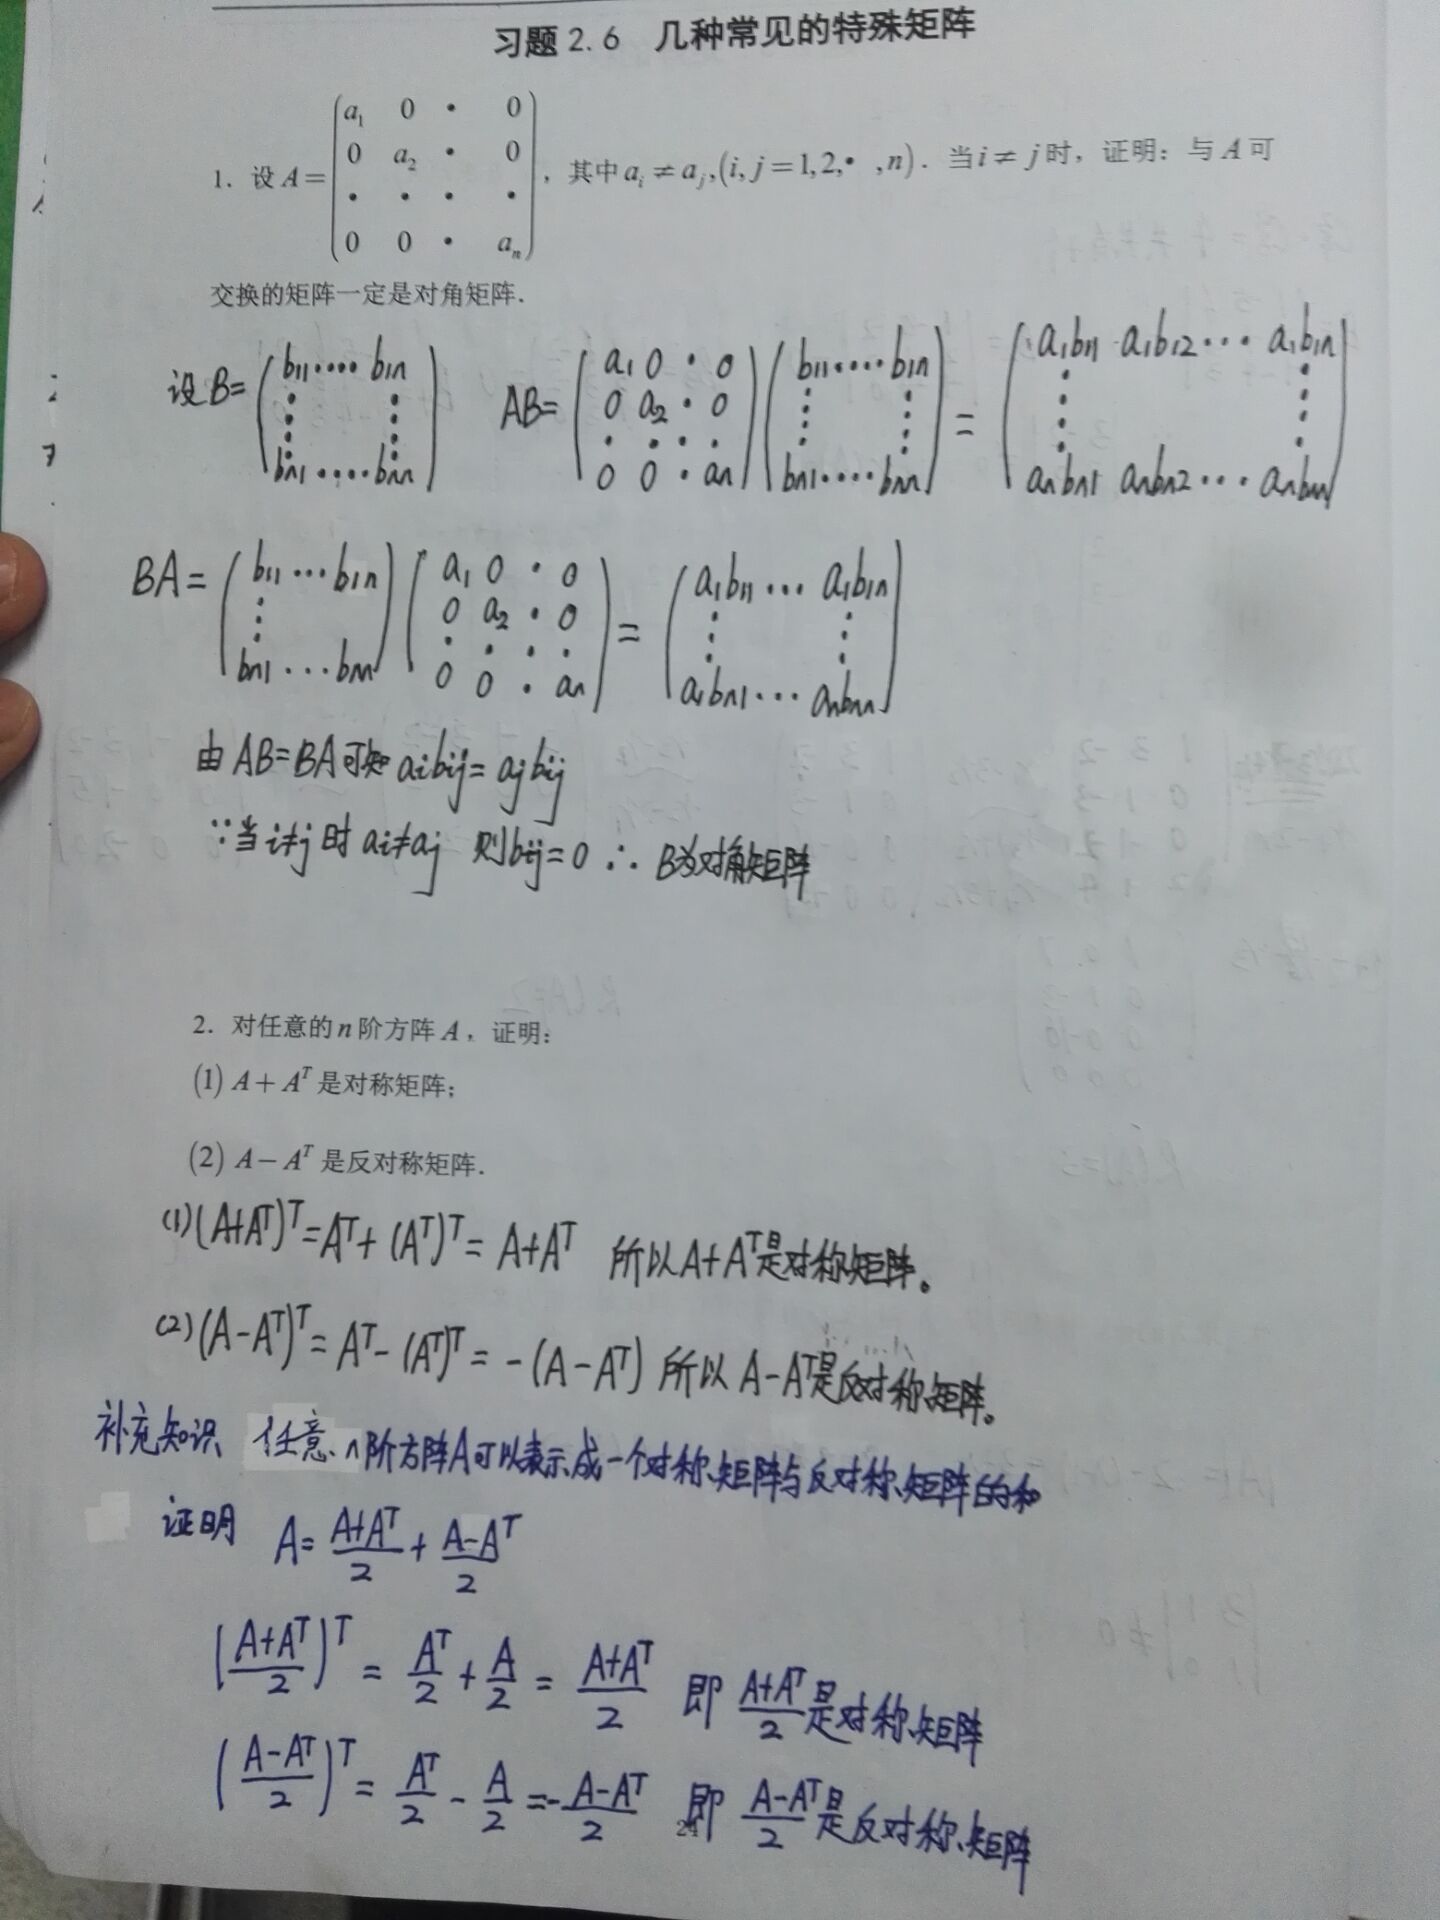 习题2.6 几种常见的特殊矩阵
1. 设 A = (a₁ 0 · 0
0 a₂ · 0
· · · ·
0 0 · aₙ), 其中 aᵢ ≠ aⱼ,(i, j = 1,2,· ,n). 当 i ≠ j 时, 证明: 与 A 可
交换的矩阵一定是对角矩阵.
设 B = (b₁₁ ···· b₁ₙ
⋮ ⋮
bₙ₁ ···· bₙₙ) AB = (a₁ 0 · 0
0 a₂ · 0
· · · ·
0 0 · aₙ)(b₁₁ ···· b₁ₙ
⋮ ⋮
bₙ₁ ···· bₙₙ) = (a₁b₁₁ a₁b₁₂ ··· a₁b₁ₙ
⋮ ⋮
aₙbₙ₁ aₙbₙ₂ ··· aₙbₙₙ)
BA = (b₁₁ ··· b₁ₙ
⋮
bₙ₁ ··· bₙₙ)(a₁ 0 · 0
0 a₂ · 0
· · · ·
0 0 · aₙ) = (a₁b₁₁ ··· a₁b₁ₙ
⋮ ⋮
a₁bₙ₁ ··· aₙbₙₙ)
由 AB=BA 可知 aᵢbᵢⱼ = aⱼbᵢⱼ
∵当 i≠j 时 aᵢ≠aⱼ 则 bᵢⱼ=0 ∴ B为对角矩阵
2. 对任意的 n 阶方阵 A, 证明:
(1) A + Aᵀ 是对称矩阵;
(2) A − Aᵀ 是反对称矩阵.
(1) (A+Aᵀ)ᵀ = Aᵀ + (Aᵀ)ᵀ = A+Aᵀ 所以 A+Aᵀ是对称矩阵。
(2) (A−Aᵀ)ᵀ = Aᵀ − (Aᵀ)ᵀ = −(A−Aᵀ) 所以 A−Aᵀ是反对称矩阵。
补充知识 任意n阶方阵A可以表示成一个对称矩阵与反对称矩阵的和
证明 A = (A+Aᵀ)/2 + (A−Aᵀ)/2
((A+Aᵀ)/2)ᵀ = Aᵀ/2 + A/2 = (A+Aᵀ)/2 即 (A+Aᵀ)/2 是对称矩阵
((A−Aᵀ)/2)ᵀ = Aᵀ/2 − A/2 = −(A−Aᵀ)/2 即 (A−Aᵀ)/2 是反对称矩阵
24